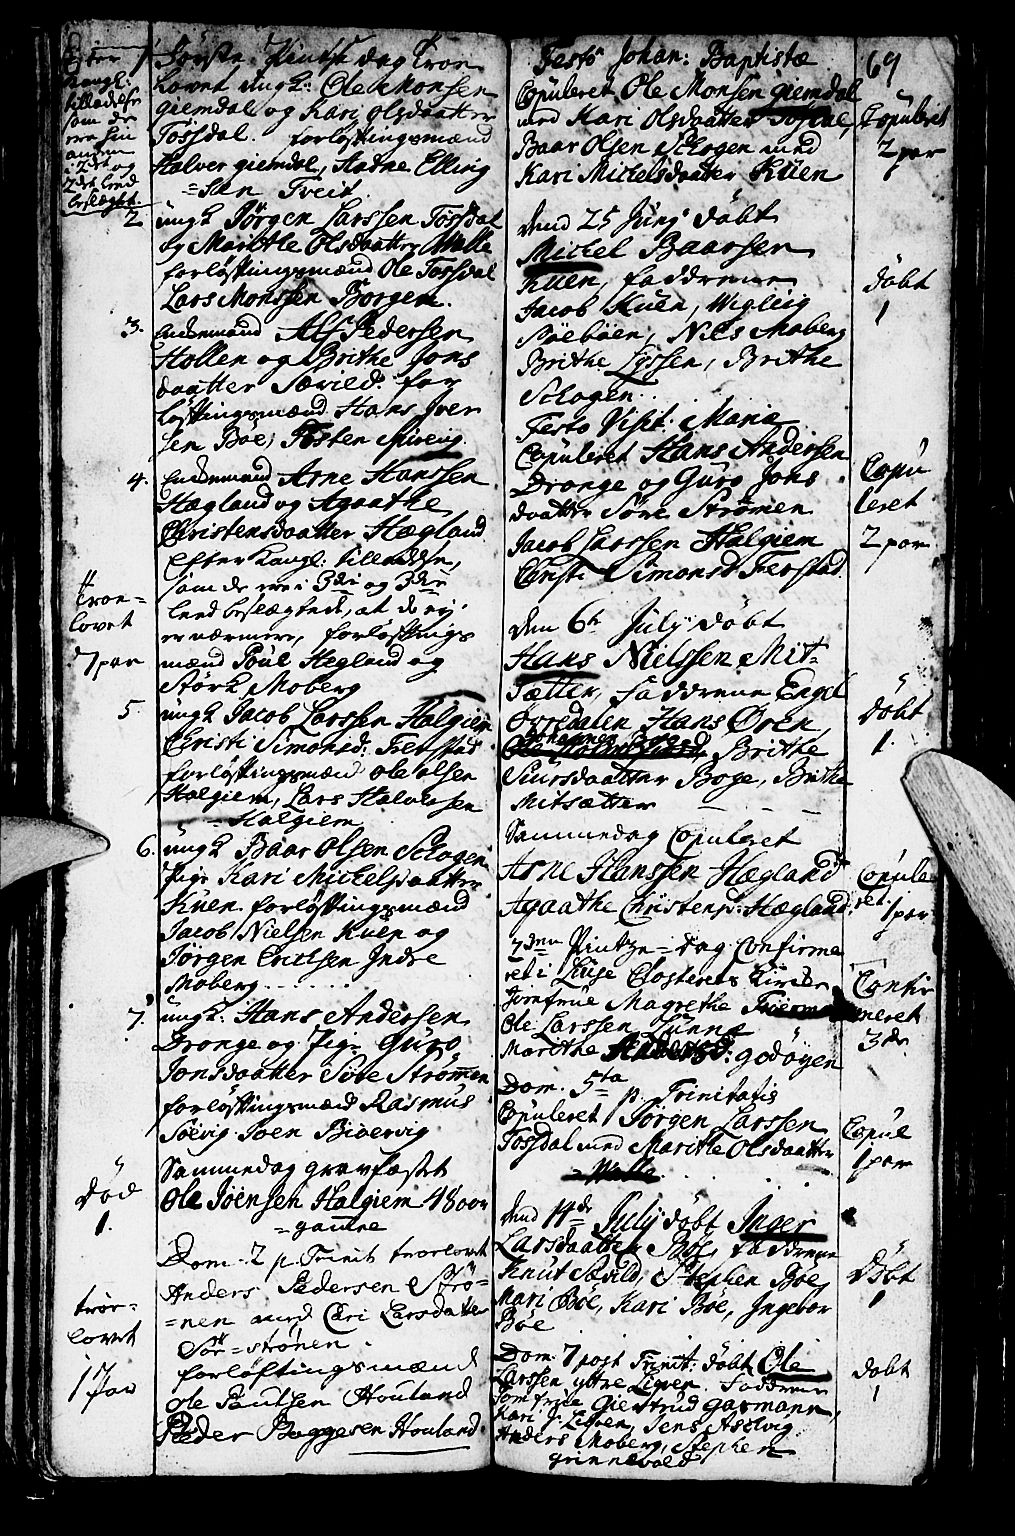 Efter
Kangl:
tilladelse
som de
ere hin
anden
i 2det og
2det Leed
beslægtet
1 Første Pintse dag Troe
lovet ungk: Ole Monsen
giemdal og Kari Olsdaatter
Tossdal. forløftingsmænd
Halver giemdal, Aadne Elling
=sen Tveit
2 ungk Jørgen Larssen Tossdal
og Marithe Olsdaatter Walle
forløftingsmænd Ole Tossdal
Lars Monssen Borgen.
3. Enkemand Alf Pedersen
Hollen og Brithe Jons
daatter Sævied. for
løftingsmænd Hans Iver
sen Bøe, Tosten
4. Enkemand Arne Hanssen
Hægland og Agaathe
Christensdaatter Hægland
Efter Kangl: tilladelse,
som de ere i 3die og 3die
Leed beslægtede, at de ey
er nærmere, forløftings
mænd Poul Hegland og
Størk Moberg
Troe=
lovet
7 par
5 ungk Jacob Larssen Halgiem
Christi Simonsd: Frerstad
forløftingsmænd Ole Olsen
Halgiem, Lars Halvorsen
Halgiem
6. ungk Baar Olsen Schogen
Pige Kari Michelsdaatter
Kuen forløftingsmænd
Jacob Nielsen Kuen og
Jørgen Erichsen Indre
Moberg......
7. ungk: Hans Andersen
Drange og Pige Guro
Jonsdaatter Søre Strømen
forløftingsmænd Rasmus
Søevig Joen Biørvig
Sammedag gravfæstet
Død
1.
Ole Joensen Halgiem 48 aar
=gamle
Dom. 2 p. Trinit troelovet
Anders Pedersen Strø=
=nen med Cari Larsdatter
Sør=strønen.
troe=
lovet
1 Par
forløftingsmænd
Ole Poulsen Houland
Peder Baggesen Houland
69
Festo Johan: Baptistæ
Copuleret Ole Monsen giemdal
med Kari Olsdaatter Tosdal,
Baar Olsen Schogen med
Kari Michelsdaatter Kuen
Copuleret
2 par
dend 25 Junj døbt
Michel Baarsen
Kuen, faddrene
Jacob Kuen, Wigleig
Bøebøen, Niels Moberg
Brithe Lyssen, Brithe
Schogen..
døbt
1
Festo Visit: Mariæ
Copuleret Hans Andersen
Drange og Guro Jons
daatter Søre Strømen
Jacob Larssen Halgiem
Christi Simonsd Frerstad
Copu
leret
2 par
den 6te July døbt
Hans Nielssen Mit=
sætter, faddrene Engel
Øvredalen Hans Øren
Johannes Boge
Brithe
Siursdaatter Boge, Brithe
Mitsætter
døbt
1.
Sammedag Copuleret
Arne Hanssen Hægland
Agaathe Christensd: Hægland.
Copule
ret.
1 par
2den Pintze=dag Confirme
ret i Lyse Closters Kircke
Jomfrue Magrethe
Ole Larssen Sunne
Marithe Andersd: godøyen
Confir
meret
3de
Dom. 5ta p. Trinitatis
Copuleret Jørgen Larssen
Tossdal med Marithe Olsdaatter
=Walle
Copul
1 par
dend 11de July døbt Inger
Larsdaatter Bøe, faddrene
Knut Sævild, Stephen Bøe,
Mari Bøe, Kari Bøe, Ingebor
Bøe
Døbt
1
Dom. 7 post Trinit: døbt Ole
Larssen yttre Ligven. Faddrene
Jomfrue Giertrud garmann,
Kari J: Ligven, Jens Asdvig
Anders Moberg, Stephen
grinnevold
døbt
1